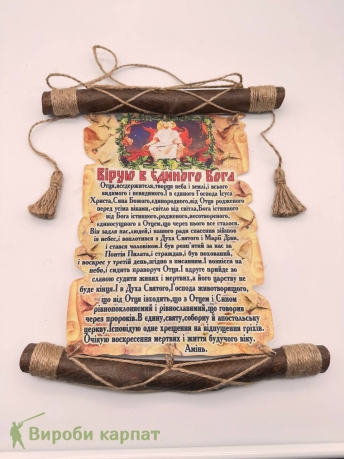 Вірую в Єдиного Бога
Отця, вседержителя, творця неба і землі, і всього
видимого і невидимого. І в єдиного Господа Ісуса
Христа, Сина Божого, єдинородного, від Отця родженого
перед усіма віками, -світло від світла, Бога істинного
від Бога істинного, родженого, несотвореного,
єдиносущного з Отцем, що через нього все сталося.
Він задля нас, людей, і нашого ради спасення зійшов
із небес, і воплотився з Духа Святого і Марії Діви,
і стався чоловіком. І був розп'ятий за нас за
Понтія Пилата, і страждав, і був похований,
і воскрес у третій день, згідно з писанням. І вознісся на
небо, і сидить праворуч Отця. І вдруге прийде зо
славою судити живих і мертвих, а його царству не
буде кінця. І в Духа Святого, Господа животворящого,
що від Отця ізходить, що з Отцем і Сином
рівнопоклоняемий і рівнославимий, що говорив
через пророків. В єдину, святу, соборну й апостольську
церкву. Ісповідую одне хрещення на відпущення гріхів.
Очікую воскресення мертвих і життя будучого віку.
Амінь.
Вироби карпат